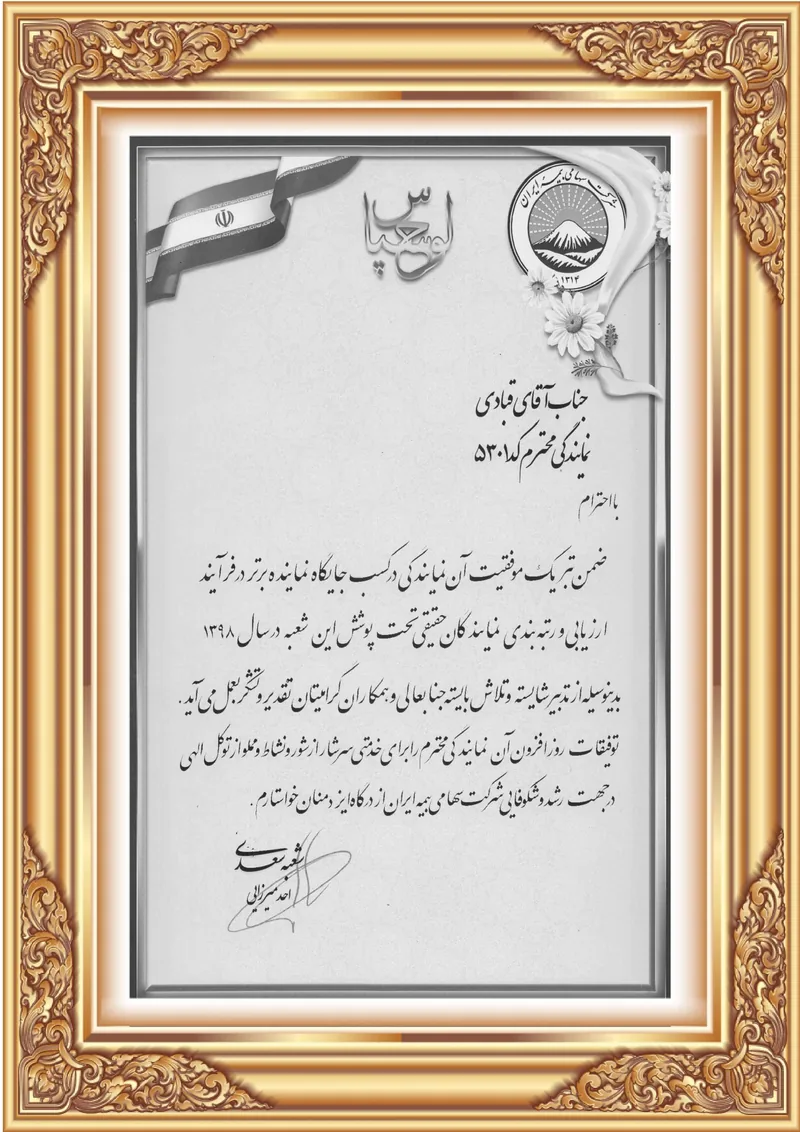 لوح سپاس
شرکت سهامی بیمه ایران
۱۳۱۴
جناب آقای قبادی
نمایندگی محترم کد ۵۳۰۱
با احترام
ضمن تبریک موفقیت آن نمایندگی در کسب جایگاه نماینده برتر در فرآیند
ارزیابی و رتبه بندی نمایندگان حقیقی تحت پوشش این شعبه در سال ۱۳۹۸
بدینوسیله از تدبیر شایسته و تلاش بایسته جنابعالی و همکاران گرامیتان تقدیر و تشکر بعمل می آید.
توفیقات روزافزون آن نمایندگی محترم را برای خدمتی سرشار از شور و نشاط و مملو از توکل الهی
در جهت رشد و شکوفایی شرکت سهامی بیمه ایران از درگاه ایزد منان خواستارم.
شعبه سعدی
احد میرزایی